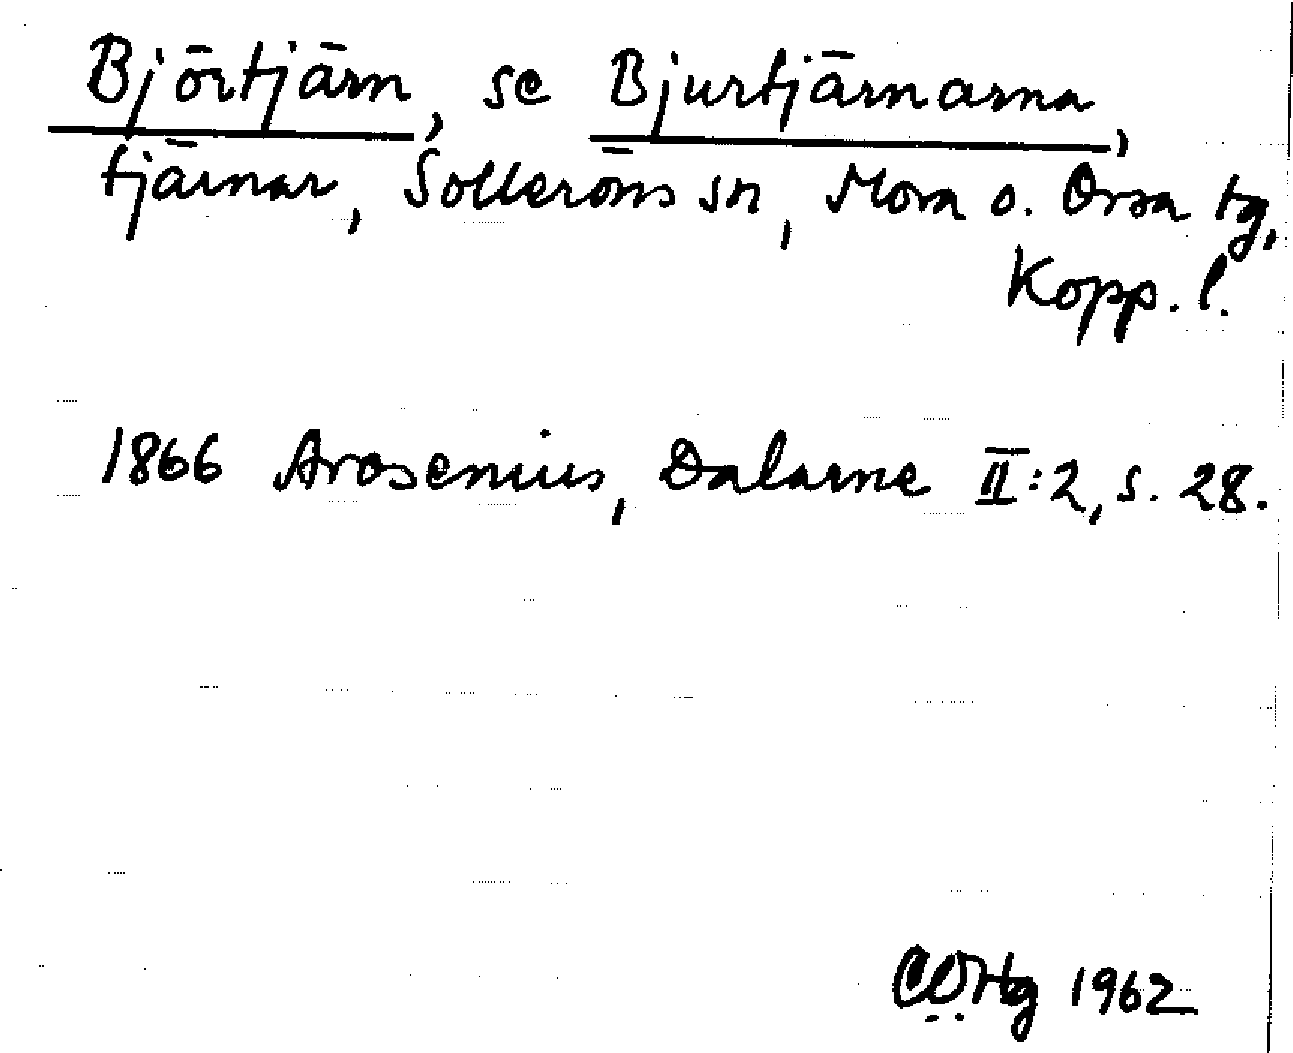 Björtjärn, se Bjurtjärnarna,
tjärnar, Solleröns sn, Mora o. Orsa tg,
Kopp. l.
1866 Arosenius, Dalarne II:2, s. 28.
1962